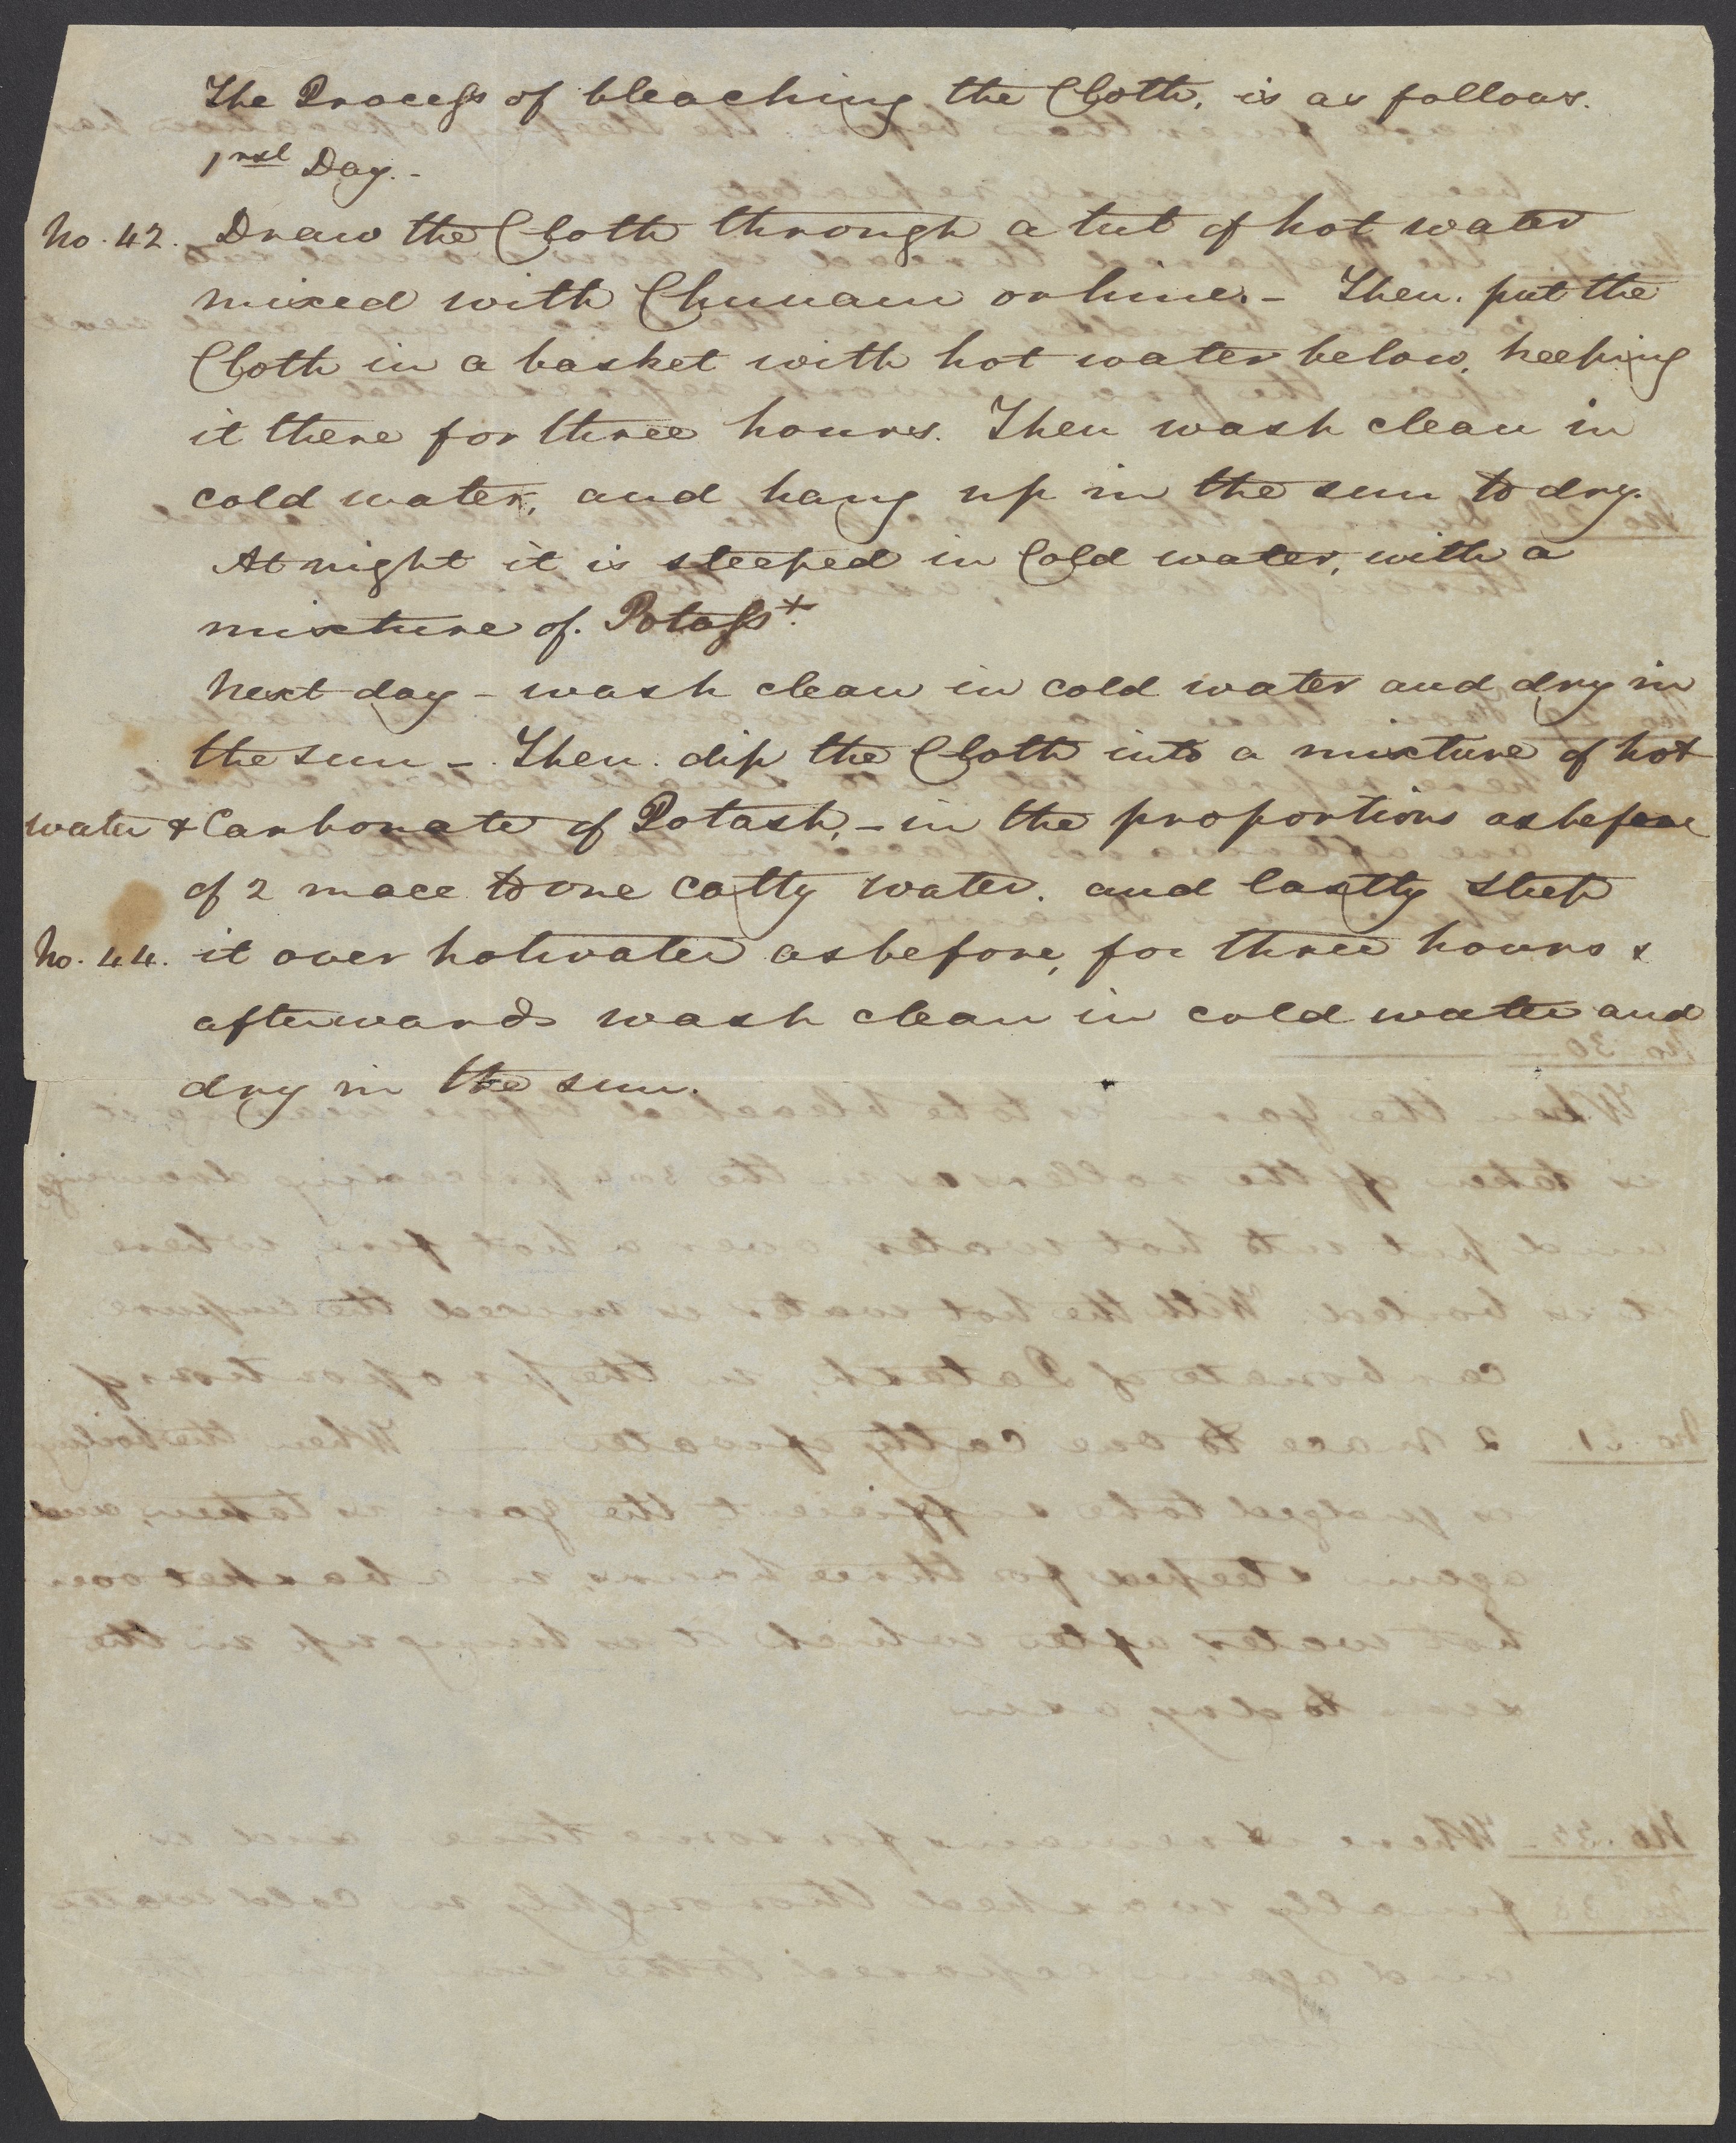 The Process of bleaching the Cloth, is as follows.
1rst Day. -
No. 42. Draw the Cloth through a tub of hot water
mixed with Chunam or lime. - Then. put the
Cloth in a basket with hot water below, keeping
it there for three hours. Then wash clean in
cold water, and hang up in the sun to dry.
At night it is steeped in Cold water, with a
mixture of. Potass+.
Next day - wash clean in cold water and dry in
the sun - Then. dip the Cloth into a mixture of hot
water & Carbonate of Potash, - in the proportions as before
of 2 mace to one Catty water. and lastly steep
No. 44. it over hot water as before, for three hours &
afterwards wash clean in cold water and
dry in the sun.